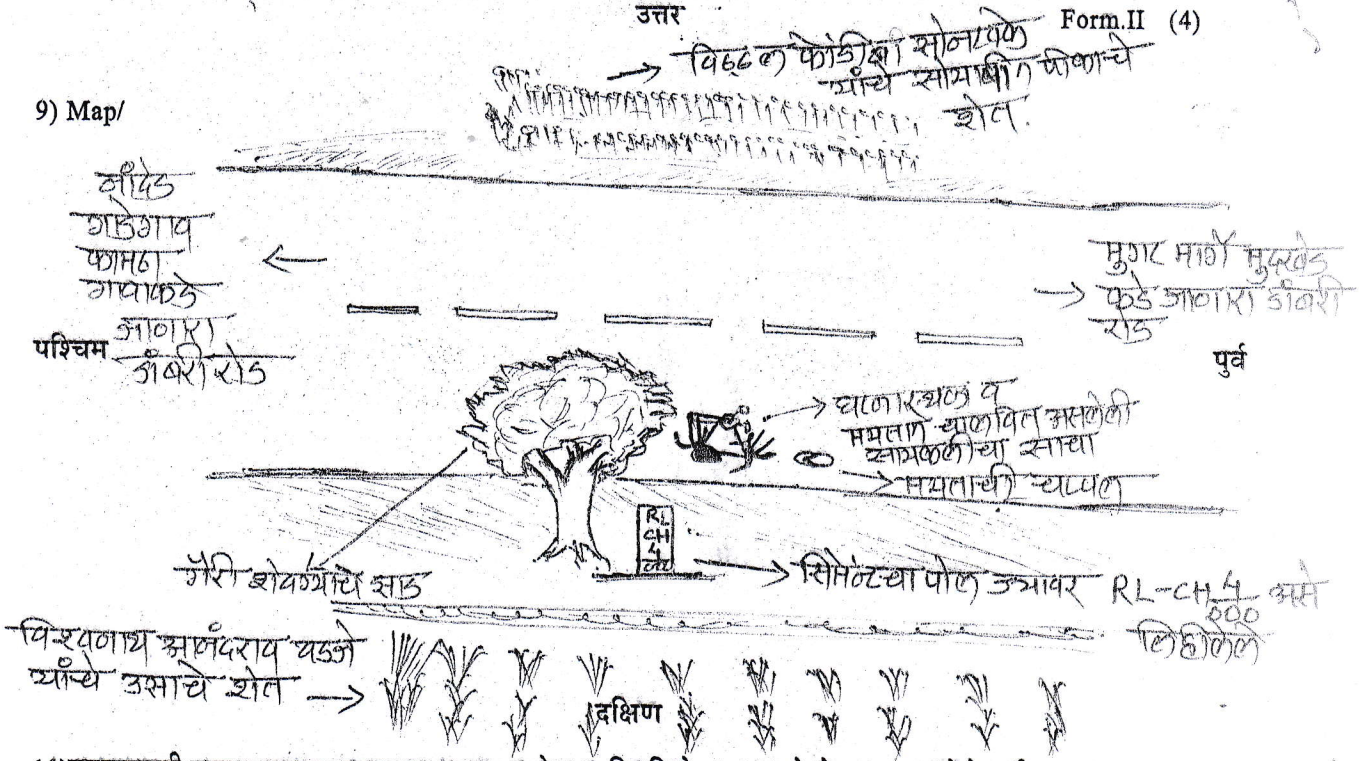 उत्तर
Form.II (4)
9) Map/
विठ्ठल सोनटक्के
यांचे सोयाबीन पीकाचे
शेत.
नांदेड
गाडेगाव
कामठा
गावाकडे
जाणारा
डांबरी रोड
पश्चिम
मुगट मार्गे मुदखेड
कडे जाणारा डांबरी
रोड
पुर्व
घटनास्थळ व
मयताने चालवित असलेली
सायकलीचा साचा
मयताची चप्पल
RL
CH
4
गॅरी शेवग्याचे झाड
सिमेंटचा पोल ज्यावर RL-CH 4/000 असे
लिहीलेले
विश्वनाथ आनंदराव
यांचे उसाचे शेत
दक्षिण